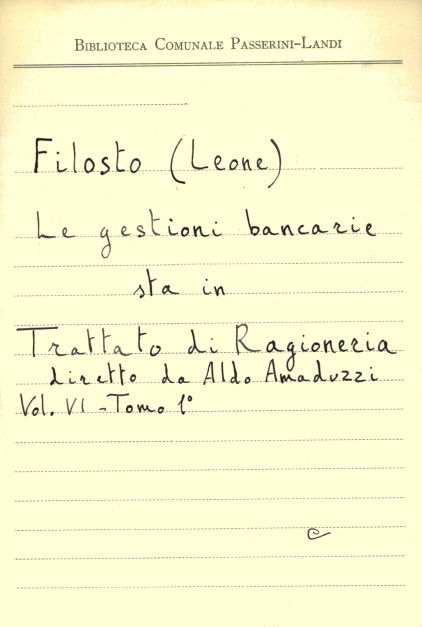 Biblioteca Comunale Passerini-Landi
Filosto (Leone)
Le gestioni bancarie
sta in
Trattato di Ragioneria
diretto da Aldo Amaduzzi
Vol. VI - Tomo 1°
e